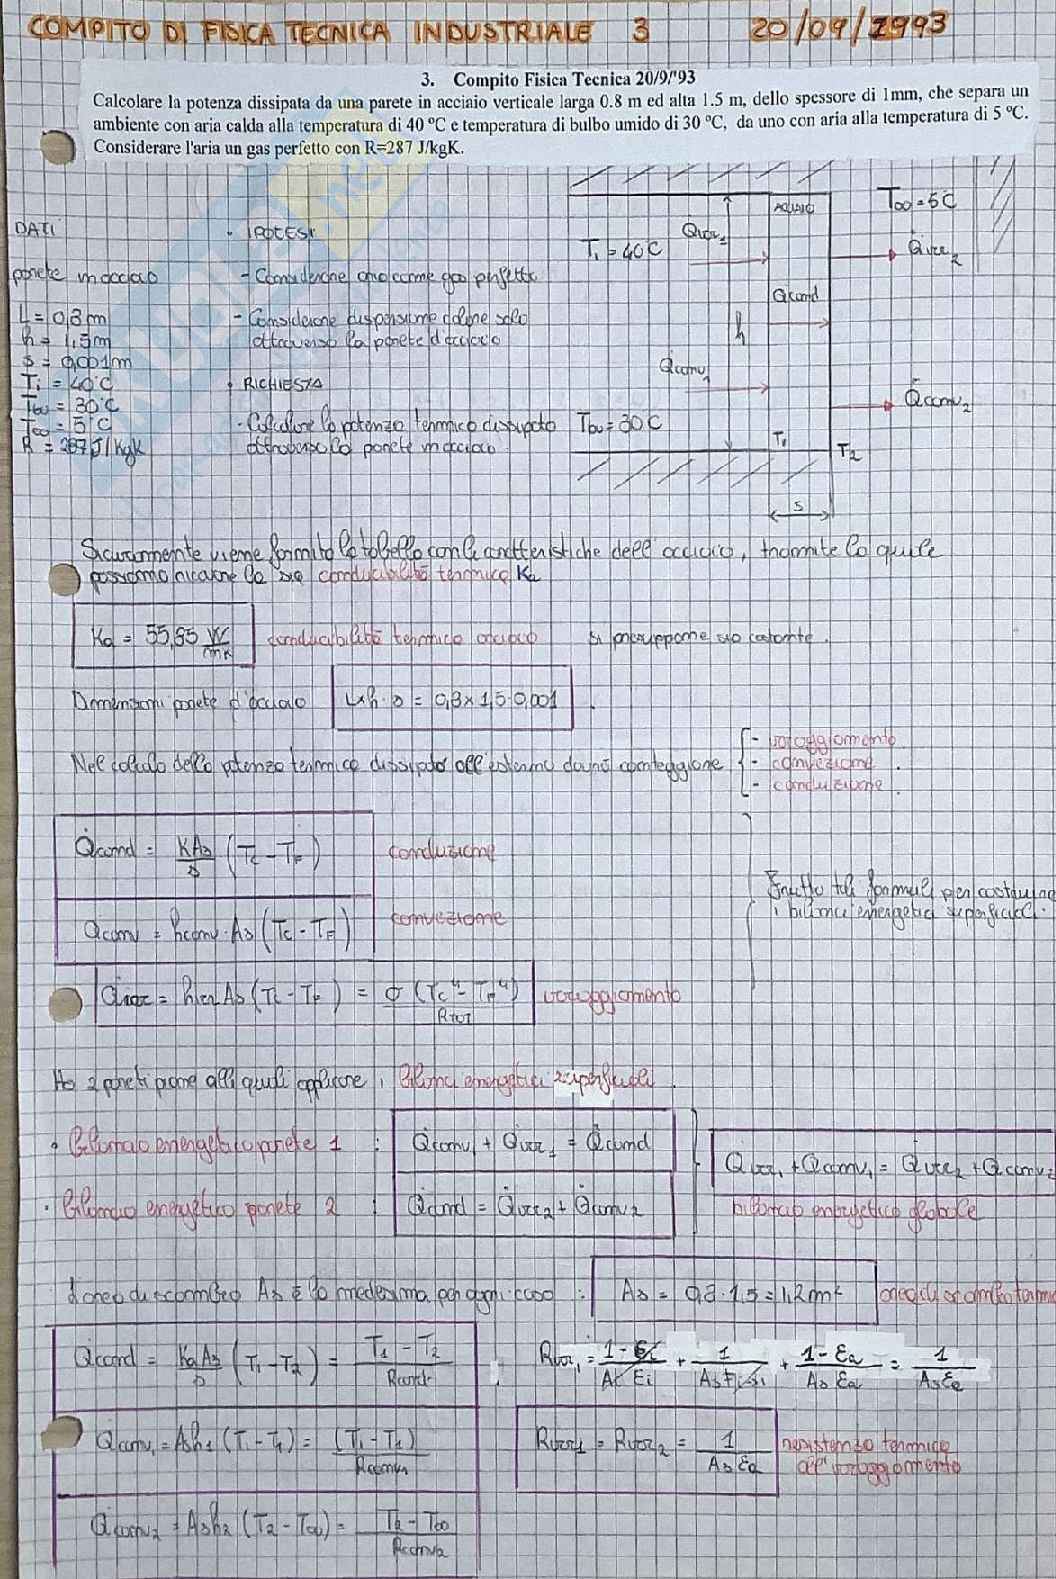 COMPITO DI FISICA TECNICA INDUSTRIALE 3 20/09/1993
3. Compito Fisica Tecnica 20/9/'93
Calcolare la potenza dissipata da una parete in acciaio verticale larga 0.8 m ed alta 1.5 m, dello spessore di 1mm, che separa un
ambiente con aria calda alla temperatura di 40 °C e temperatura di bulbo umido di 30 °C, da uno con aria alla temperatura di 5 °C.
Considerare l'aria un gas perfetto con R=287 J/kgK.
DATI
parete in acciaio
L = 0,8m
h = 1,5m
s = 0,001m
Ti = 40°C
Tbu = 30°C
T∞ = 5°C
R = 287 J/kgK
• IPOTESI
- Considerare aria come gas perfetto
- Considerare dispersione calore solo
attraverso la parete d'acciaio
• RICHIESTA
- Calcolare la potenza termica dissipata
attraverso la parete in acciaio
Ti = 40C
Tbu = 30C
T∞ = 5C
ACCIAIO
Q̇irr1
Q̇irr2
Q̇cond
h
Q̇conv1
Q̇conv2
T1
T2
s
Sicuramente viene fornita la tabella con le caratteristiche dell'acciaio, tramite la quale
possiamo ricavare la sua conducibilità termica Ka
Ka = 55,85 W/mK conducibilità termica acciaio si presuppone sia costante.
Dimensioni parete d'acciaio L×h·s = 0,8×1,5·0,001
Nel calcolo della potenza termica dissipata all'esterno dovrò conteggiare
- irraggiamento
- convezione.
- conduzione.
Q̇cond = KAs/s (Tc - TF) conduzione
Q̇conv = hconv·As (Tc - TF) convezione
Q̇irr = hirr As (Tc - TF) = σ (Tc⁴ - TF⁴)/Rirr irraggiamento
Sfrutto tali formule per costruire
i bilanci energetici superficiali.
Ho 2 pareti piane alle quali applicare i bilanci energetici superficiali.
• Bilancio energetico parete 1 : Q̇conv1 + Q̇irr1 = Q̇cond
• Bilancio energetico parete 2 : Q̇cond = Q̇irr2 + Q̇conv2
Q̇irr1 + Q̇conv1 = Q̇irr2 + Q̇conv2
bilancio energetico globale
L'area di scambio As è la medesima per ogni caso : As = 0,8·1,5 = 1,2m²
Q̇cond = KaAs/s (T1 - T2) = T1 - T2/Rcond
Rirr1 = 1-εi/Ai εi + 1/As Fi,si + 1-εa/As εa = 1/As εa
Q̇conv1 = Ash1 (Ti - T1) = (Ti - T1)/Rconv1
Rirr1 = Rirr2 = 1/As εa resistenza termica
all'irraggiamento
Q̇conv2 = Ash2 (T2 - T∞) = T2 - T∞/Rconv2